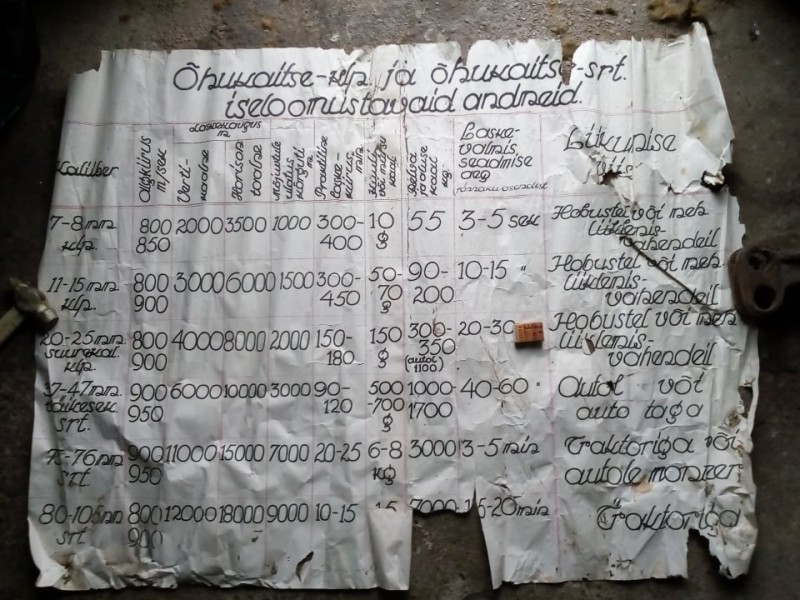 Õhukaitse-klp. ja õhukaitse-srt.
iseloomustavaid andmeid.
Kaliiber
Algkiirus m/sek
Laskekaugus m.
Verti-kaalne
Horison-taalne
Mõjustule ulatus kõrguti m.
Praktiline laske-kiirus, min.
kaal
kaal kg.
Laske-
valmis
seadmise
aeg
Liikumise
viis
7-8 mm 800 2000 3500 1000 300- 10 55 3-5 sek Hobustel või meh.
klp. 850 400 g liiklemis-
vahendeil
11-15 mm 800 3000 6000 1500 300- 50- 90- 10-15 " Hobustel või meh.
klp. 900 450 70 200 liiklemis-
g vahendeil
20-25 mm 800 4000 8000 2000 150- 150 300- 20-30 Hobustel või meh.
suurekal. 900 180 g 350 liiklemis-
klp. (autol 1100) vahendeil
37-47 mm 900 6000 10000 3000 90- 500 1000- 40-60 " Autol või
väikesek. 950 120 -700 1700 auto taga
srt. g
75-76 mm 900 11000 15000 7000 20-25 6-8 3000 3-5 min Traktoriga või
srt. 950 kg autole monteer.
80-105 mm 800 12000 18000 9000 10-15 15 7000 15-20 min Traktoriga
srt. 900